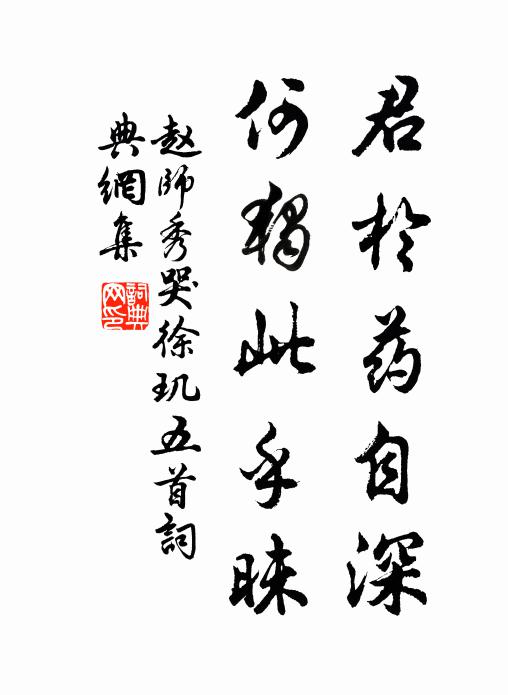 君於药自深
何独此乎昧
赵師秀哭徐玑五首詞
典網集
詞典
网印